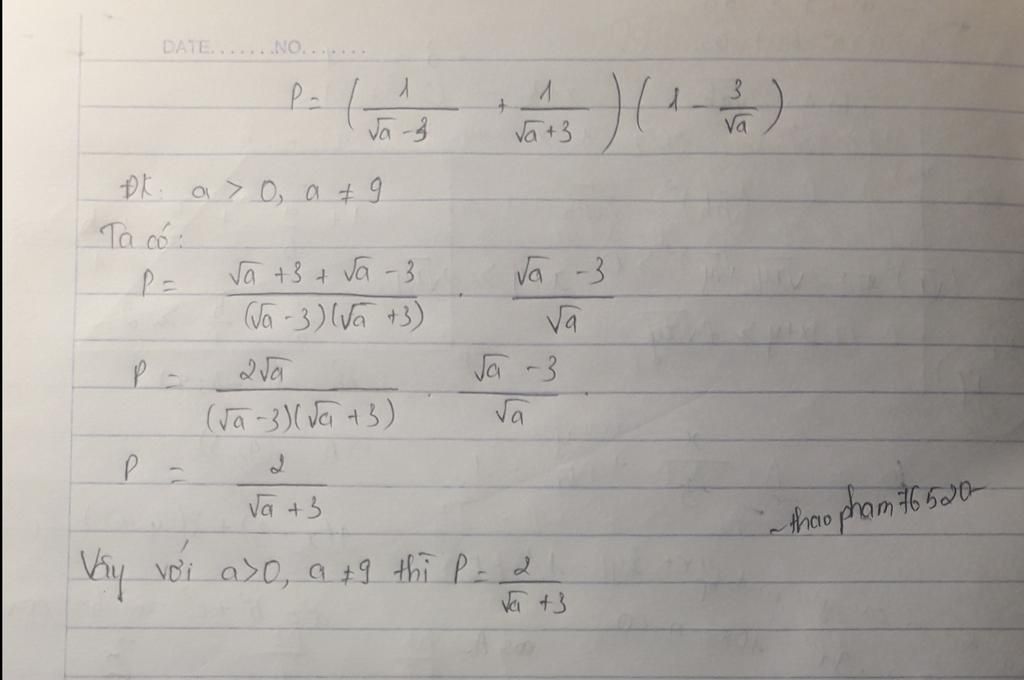 DATE.......NO.......
P = (1/(√a - 3) + 1/(√a + 3)) (1 - 3/√a)
ĐK: a > 0, a ≠ 9
Ta có:
P = (√a + 3 + √a - 3)/((√a - 3)(√a + 3)) . (√a - 3)/√a
P = 2√a/((√a - 3)(√a + 3)) . (√a - 3)/√a .
P = 2/(√a + 3)
~thaopham76520~
Vậy với a>0, a ≠ 9 thì P = 2/(√a + 3)